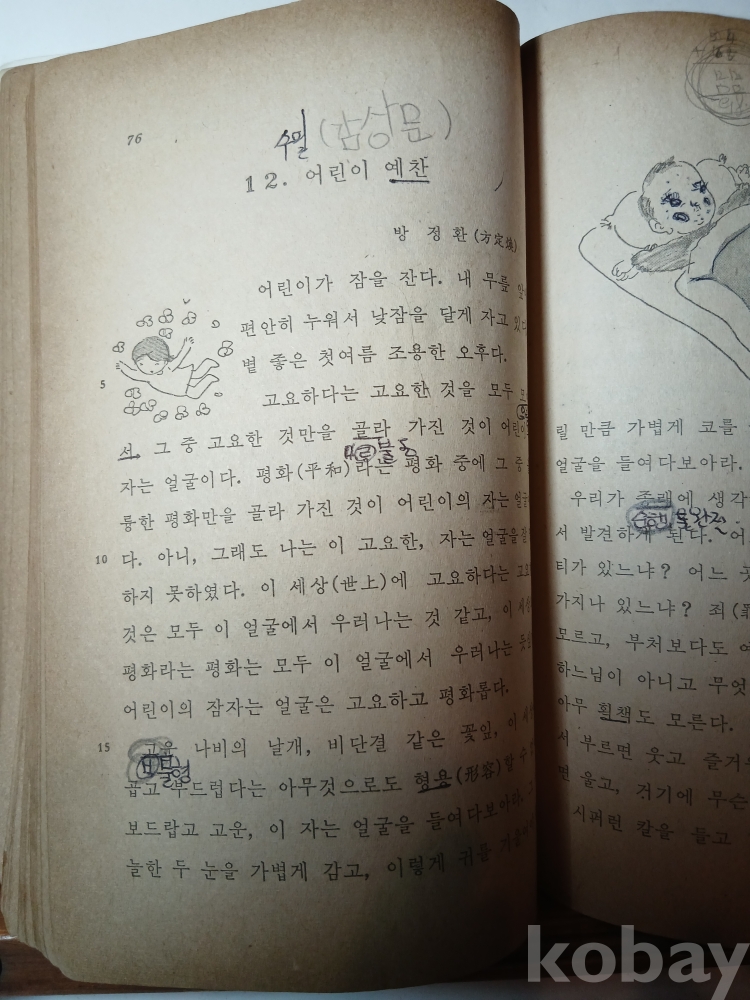 76
수필 (감상문)
12. 어린이 예찬
방 정환 (方定煥)
어린이가 잠을 잔다. 내 무릎
편안히 누워서 낮잠을 달게 자고 있다
볕 좋은 첫여름 조용한 오후다.
5
고요하다는 고요한 것을 모두
서, 그 중 고요한 것만을 골라 가진 것이
자는 얼굴이다. 평화(平和)라는 평화 중에 그 중
륭한 평화만을 골라 가진 것이 어린이의 자는 얼굴
10 다. 아니, 그래도 나는 이 고요한, 자는 얼굴을
하지 못하였다. 이 세상(世上)에 고요하다는
것은 모두 이 얼굴에서 우러나는 것 같고, 이
평화라는 평화는 모두 이 얼굴에서 우러나는
어린이의 잠자는 얼굴은 고요하고 평화롭다.
15 고운 나비의 날개, 비단결 같은 꽃잎, 이
곱고 부드럽다는 아무것으로도 형용(形容)할 수
보드랍고 고운, 이 자는 얼굴을 들여다보아라.
늘한 두 눈을 가볍게 감고, 이렇게 귀를
릴 만큼 가볍게 코를
얼굴을 들여다보아라.
우리가 종래에 생각
서 발견하게 된다. 어
티가 있느냐? 어느
가지나 있느냐? 죄(
모르고, 부처보다도 예
하느님이 아니고 무엇
아무 획책도 모른다.
서 부르면 웃고 즐거
면 울고, 거기에 무슨
시퍼런 칼을 들고
kobay